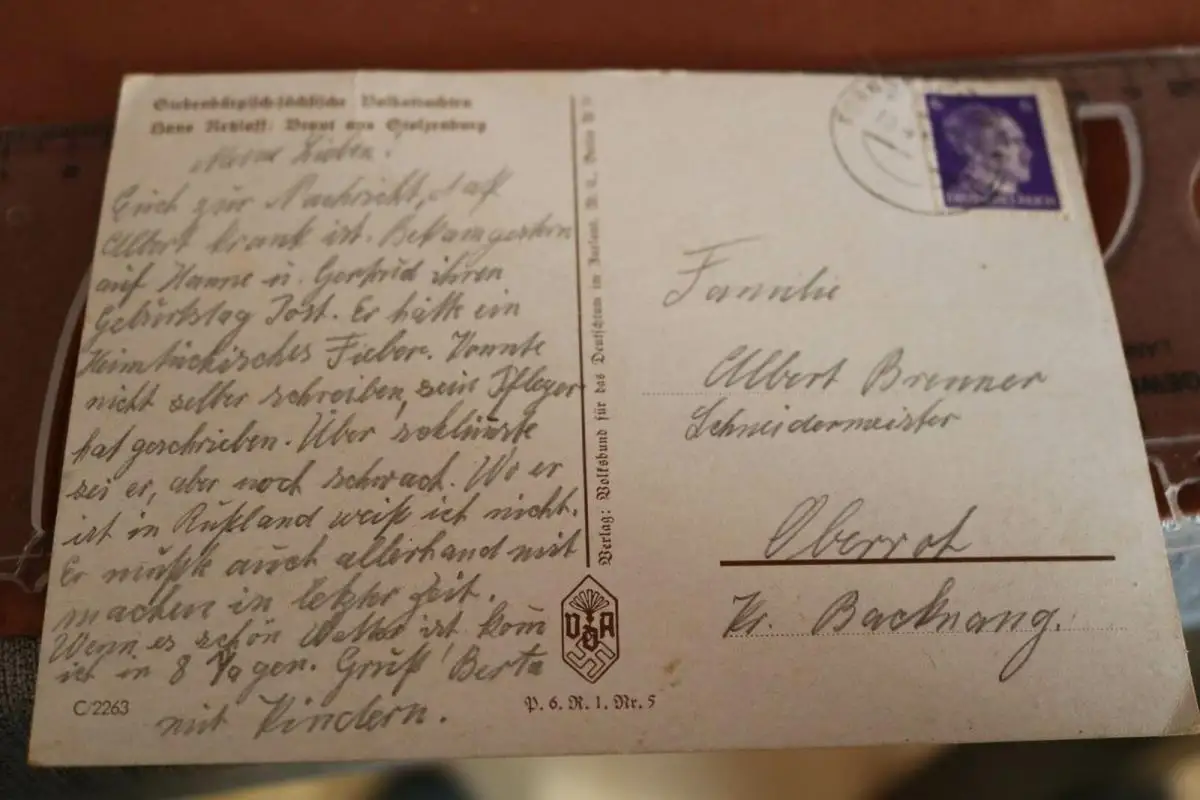 Siebenbürgisch-sächsische Volkstrachten
Hans Retzlaff: Braut aus Stolzenburg
Meine Lieben!
Euch zur Nachricht, daß
Albert krank ist. Bekam gestern
auf Hanne u. Gertrud ihren
Geburtstag Post. Er hätte ein
Heimtückisches Fieber. Konnte
nicht selber schreiben, sein Pfleger
hat geschrieben. Über schlimste
sei er, aber noch schwach. Wo er
ist in Rußland weiß ich nicht.
Er mußte auch allerhand mit
machen in letzter Zeit.
Wenn es schön Wetter ist kom
ich in 8 Tagen. Gruß Berta
mit Kindern.
C/2263
Verlag: Volksbund für das Deutschtum im Ausland.
VDA
P. 6. R. 1. Nr. 5
6 6
Familie
Albert Brenner
Schneidermeister
Oberrot
Kr. Backnang.